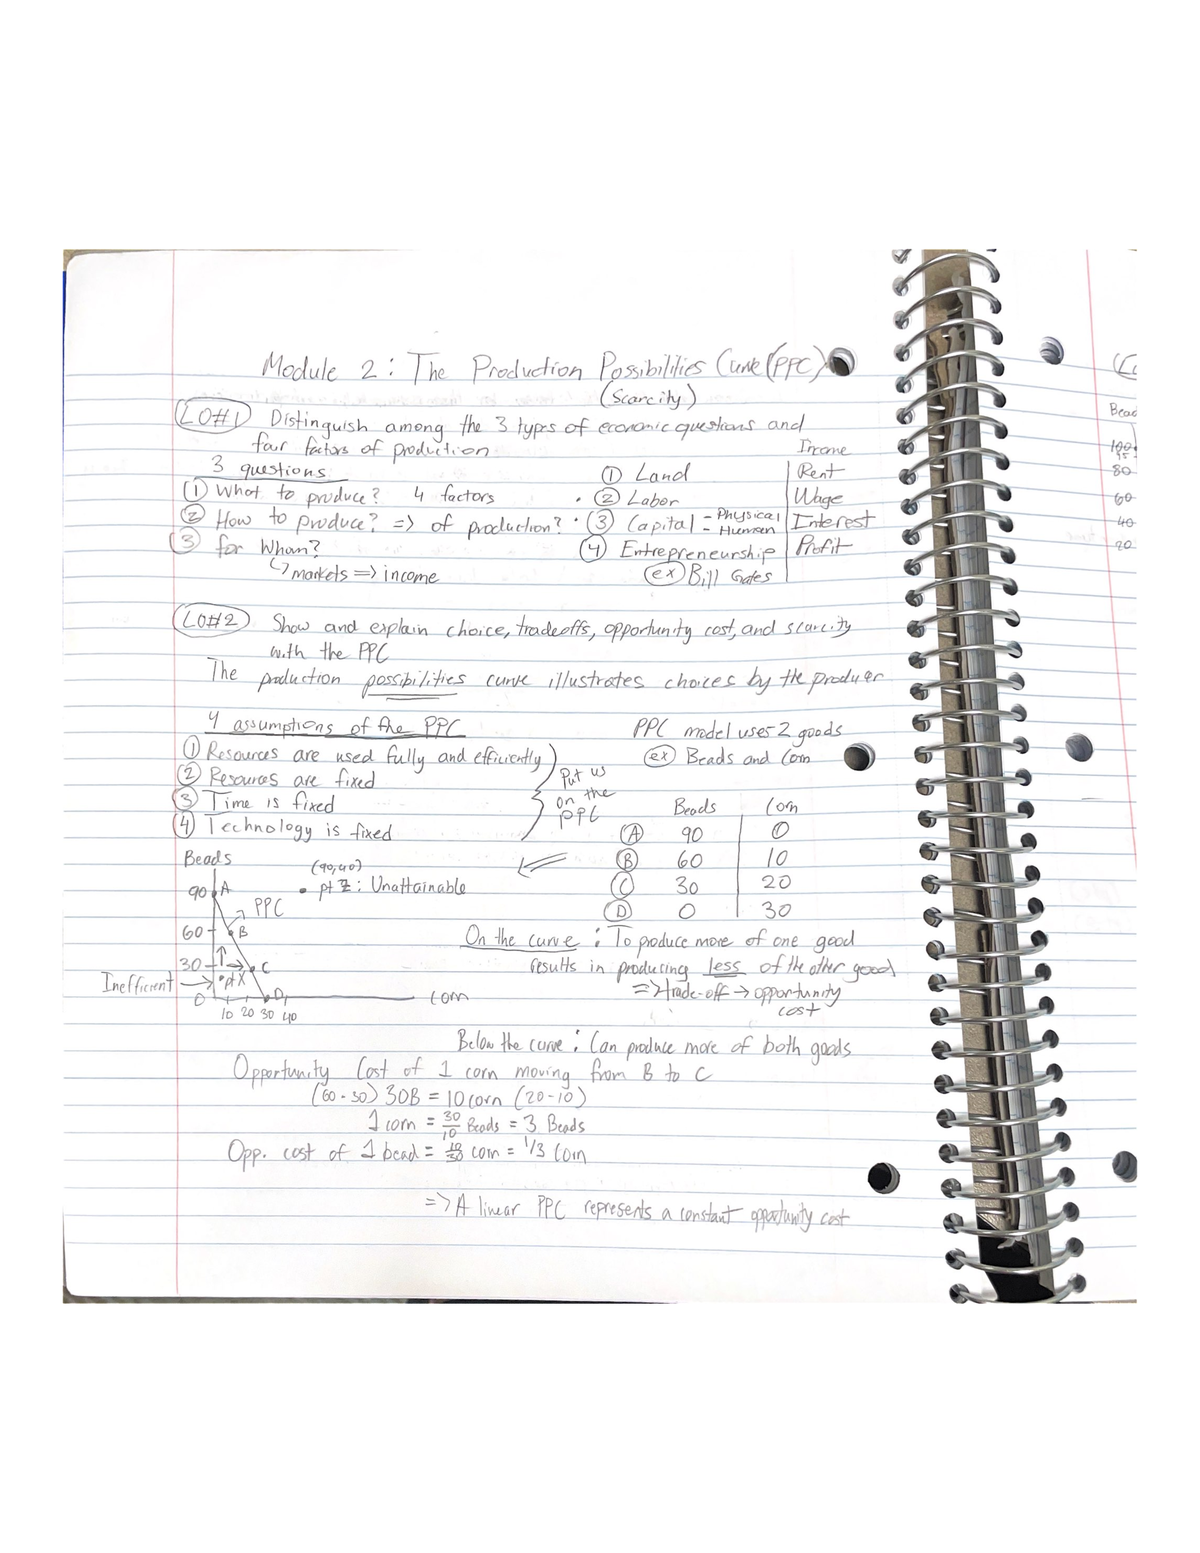 Module 2: The Production Possibilities Curve (PPC)
(Scarcity)
LO#1 Distinguish among the 3 types of economic questions and
four factors of production
Income
3 questions
① Land Rent
① What to produce? 4 factors
② Labor Wage
② How to produce? => of production?
③ Capital - Physical - Human Interest
③ for Whom?
④ Entrepreneurship Profit
↳ markets => income
ex Bill Gates
LO#2 Show and explain choice, tradeoffs, opportunity cost, and scarcity
with the PPC
The production possibilities curve illustrates choices by the producer
4 assumptions of the PPC
① Resources are used fully and efficiently
② Resources are fixed
③ Time is fixed
④ Technology is fixed
Put us
on the
PPC
PPC model uses 2 goods
ex Beads and Corn
Beads Corn
A 90 0
B 60 10
C 30 20
D 0 30
Beads
(90,40)
• pt Z: Unattainable
90 A
PPC
60 B
30 C
Inefficient → • pt X
0 D Corn
10 20 30 40
On the curve: To produce more of one good
results in producing less of the other good
=> trade-off → opportunity
cost
Below the curve: Can produce more of both goods
Opportunity Cost of 1 corn moving from B to C
(60-30) 30B = 10 corn (20-10)
1 corn = 30/10 Beads = 3 Beads
Opp. cost of 1 bead = 10/30 corn = 1/3 Corn
=> A linear PPC represents a constant opportunity cost
Bead
100
95
80
60
40
20